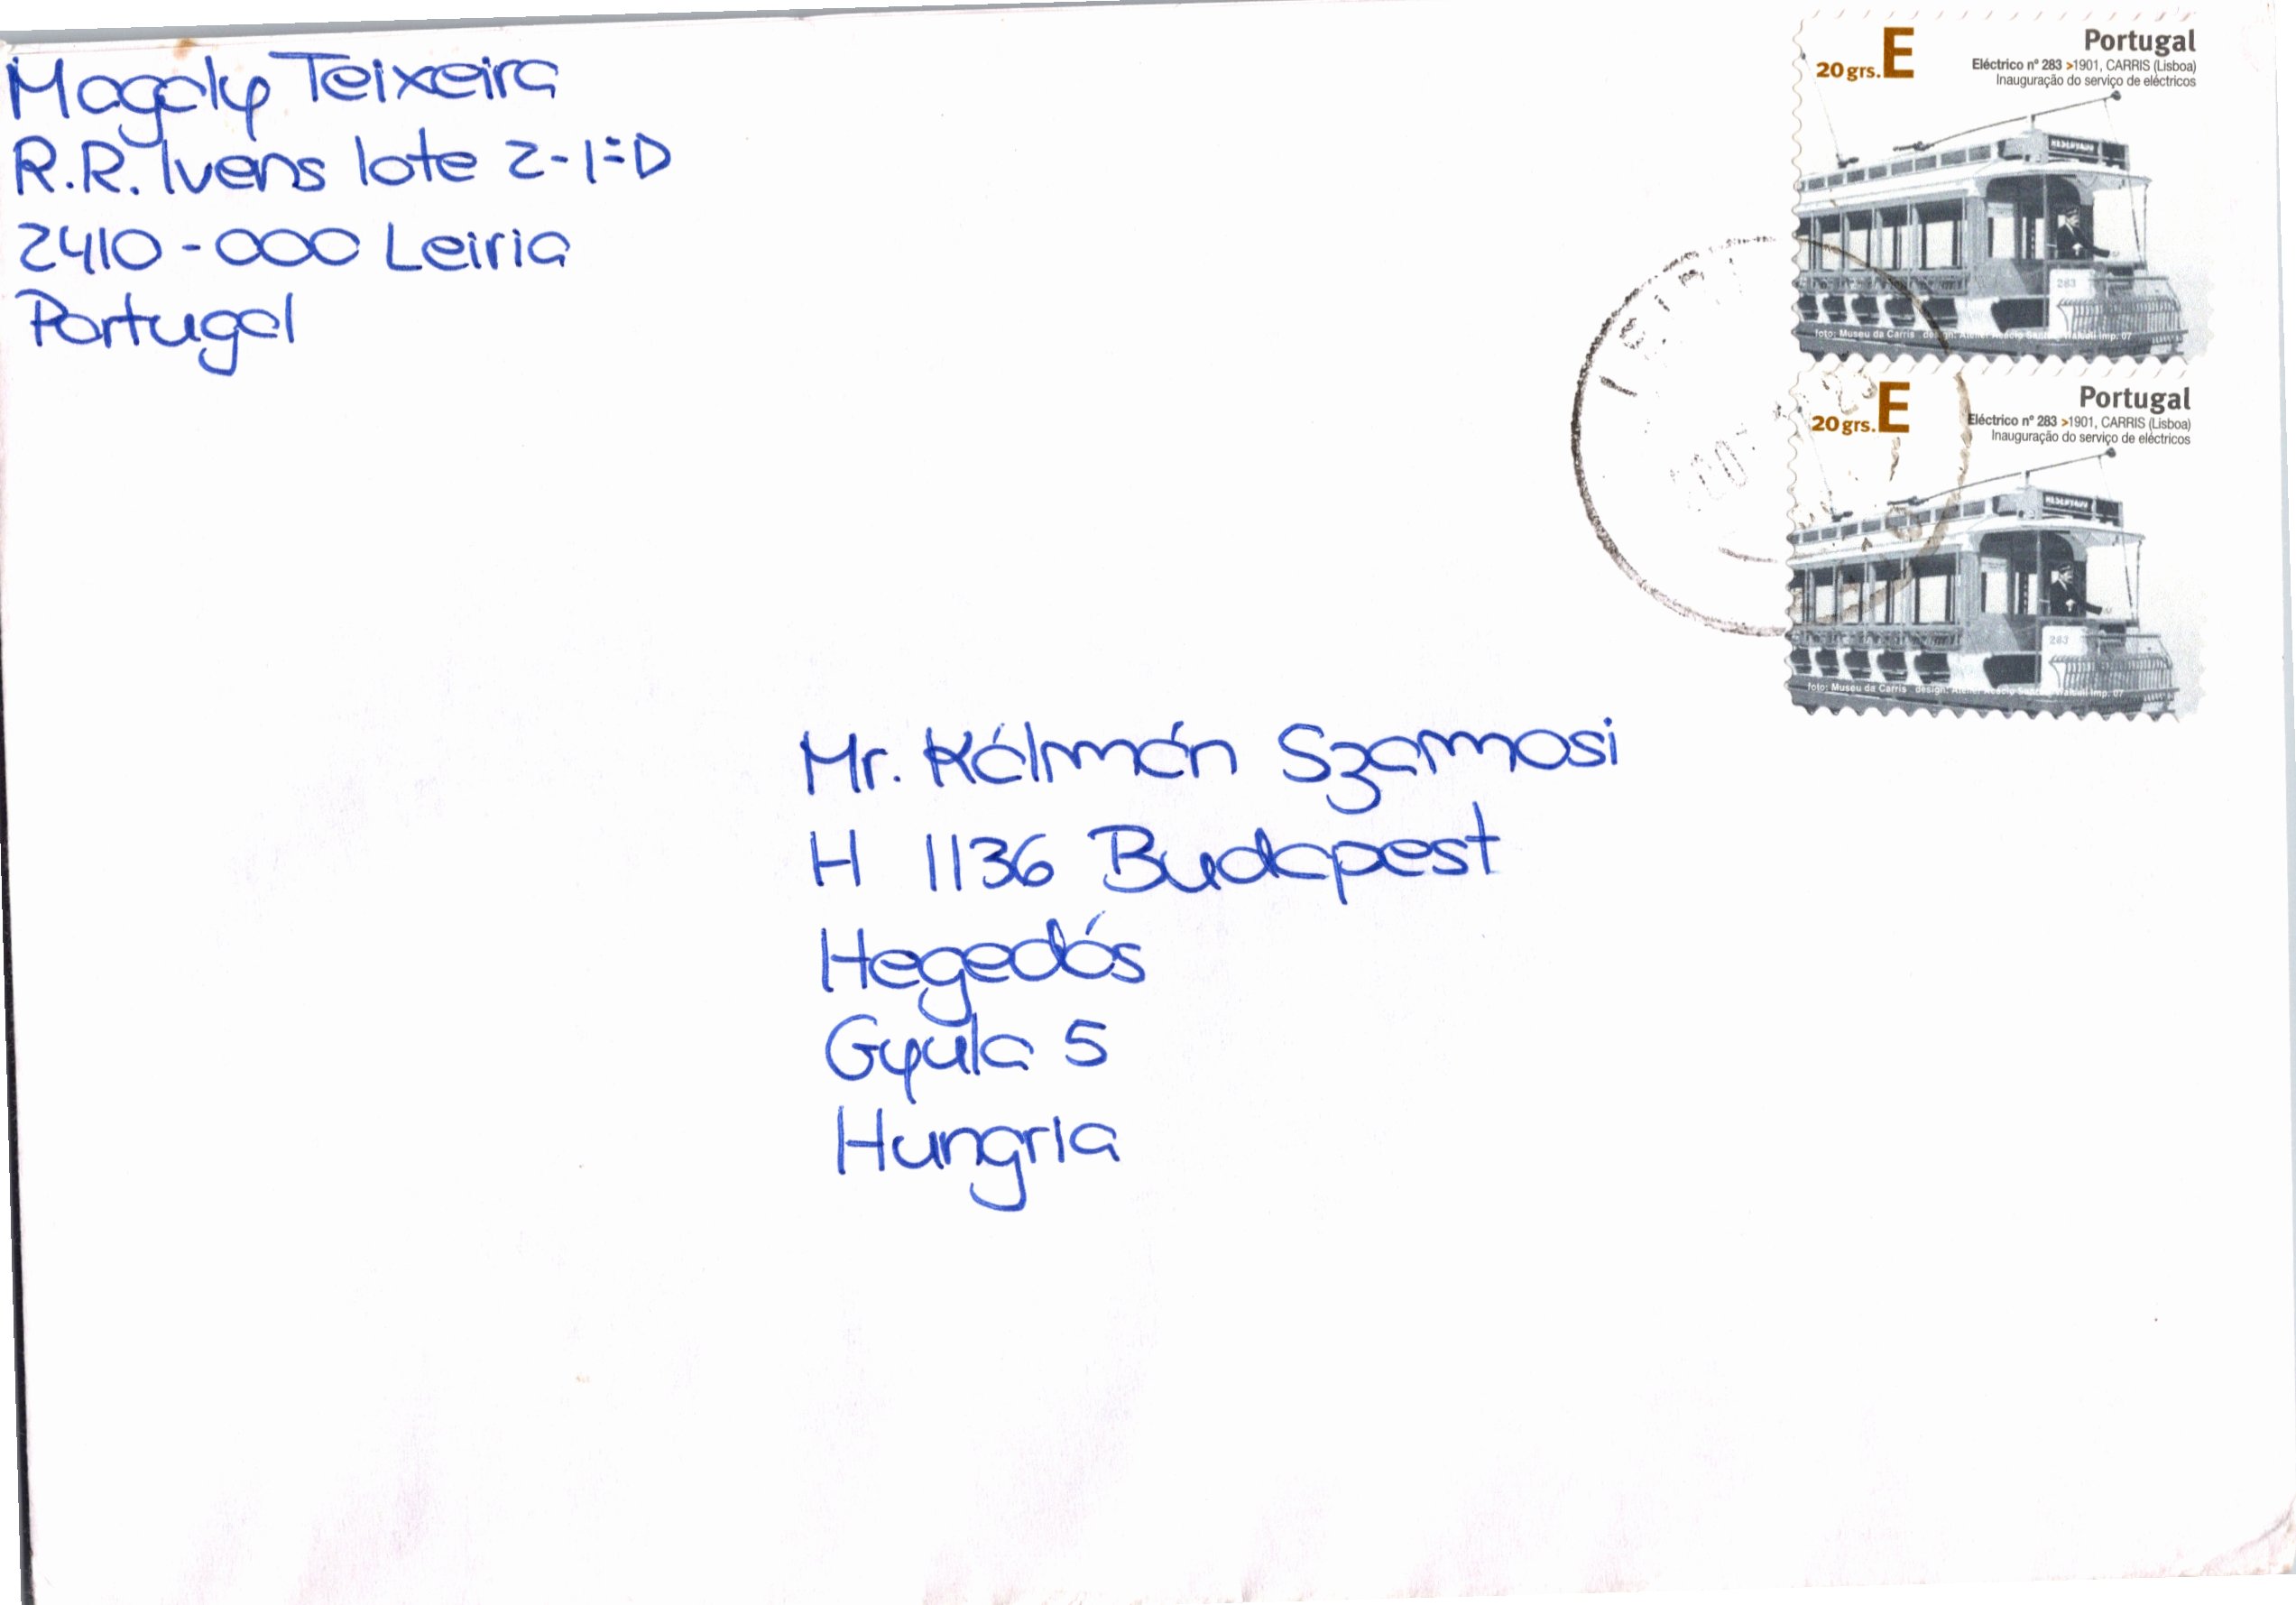 Magaly Teixeira
R.R. Ivens lote 2-1ºD
2410-000 Leiria
Portugal
Portugal
20 grs. E
Eléctrico nº 283 >1901, CARRIS (Lisboa)
Inauguração do serviço de eléctricos
283
foto: Museu da Carris
Portugal
20 grs. E
Eléctrico nº 283 >1901, CARRIS (Lisboa)
Inauguração do serviço de eléctricos
283
foto: Museu da Carris design:
Mr. Kálmán Szarmosi
H 1136 Budapest
Hegedós
Gyula 5
Hungria